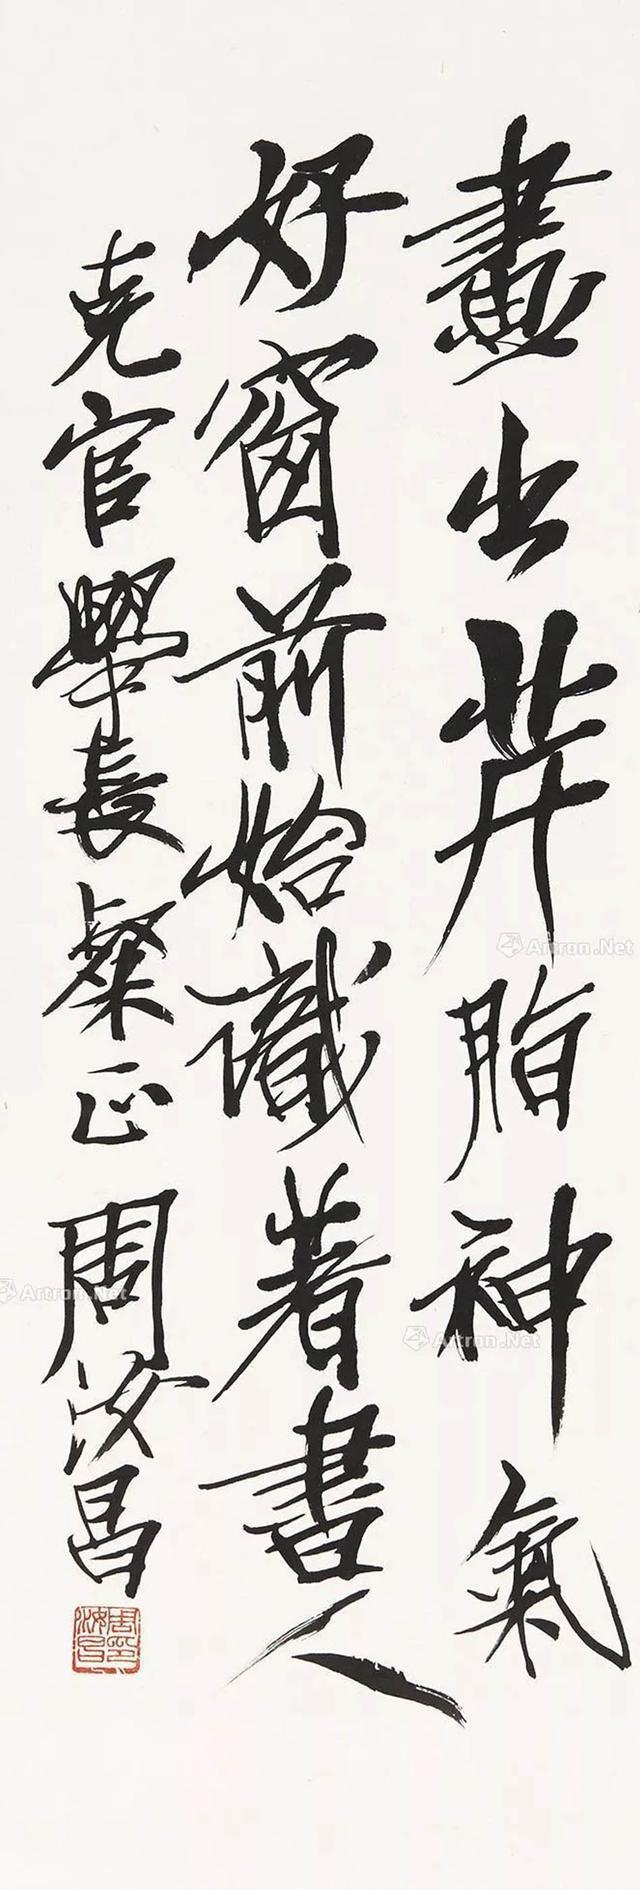 畫出芹脂神氣
好窗前始識著書人
克官學長粲正 周汝昌
周印汝昌
Artron.Net
Artron.Net
Artron.Net